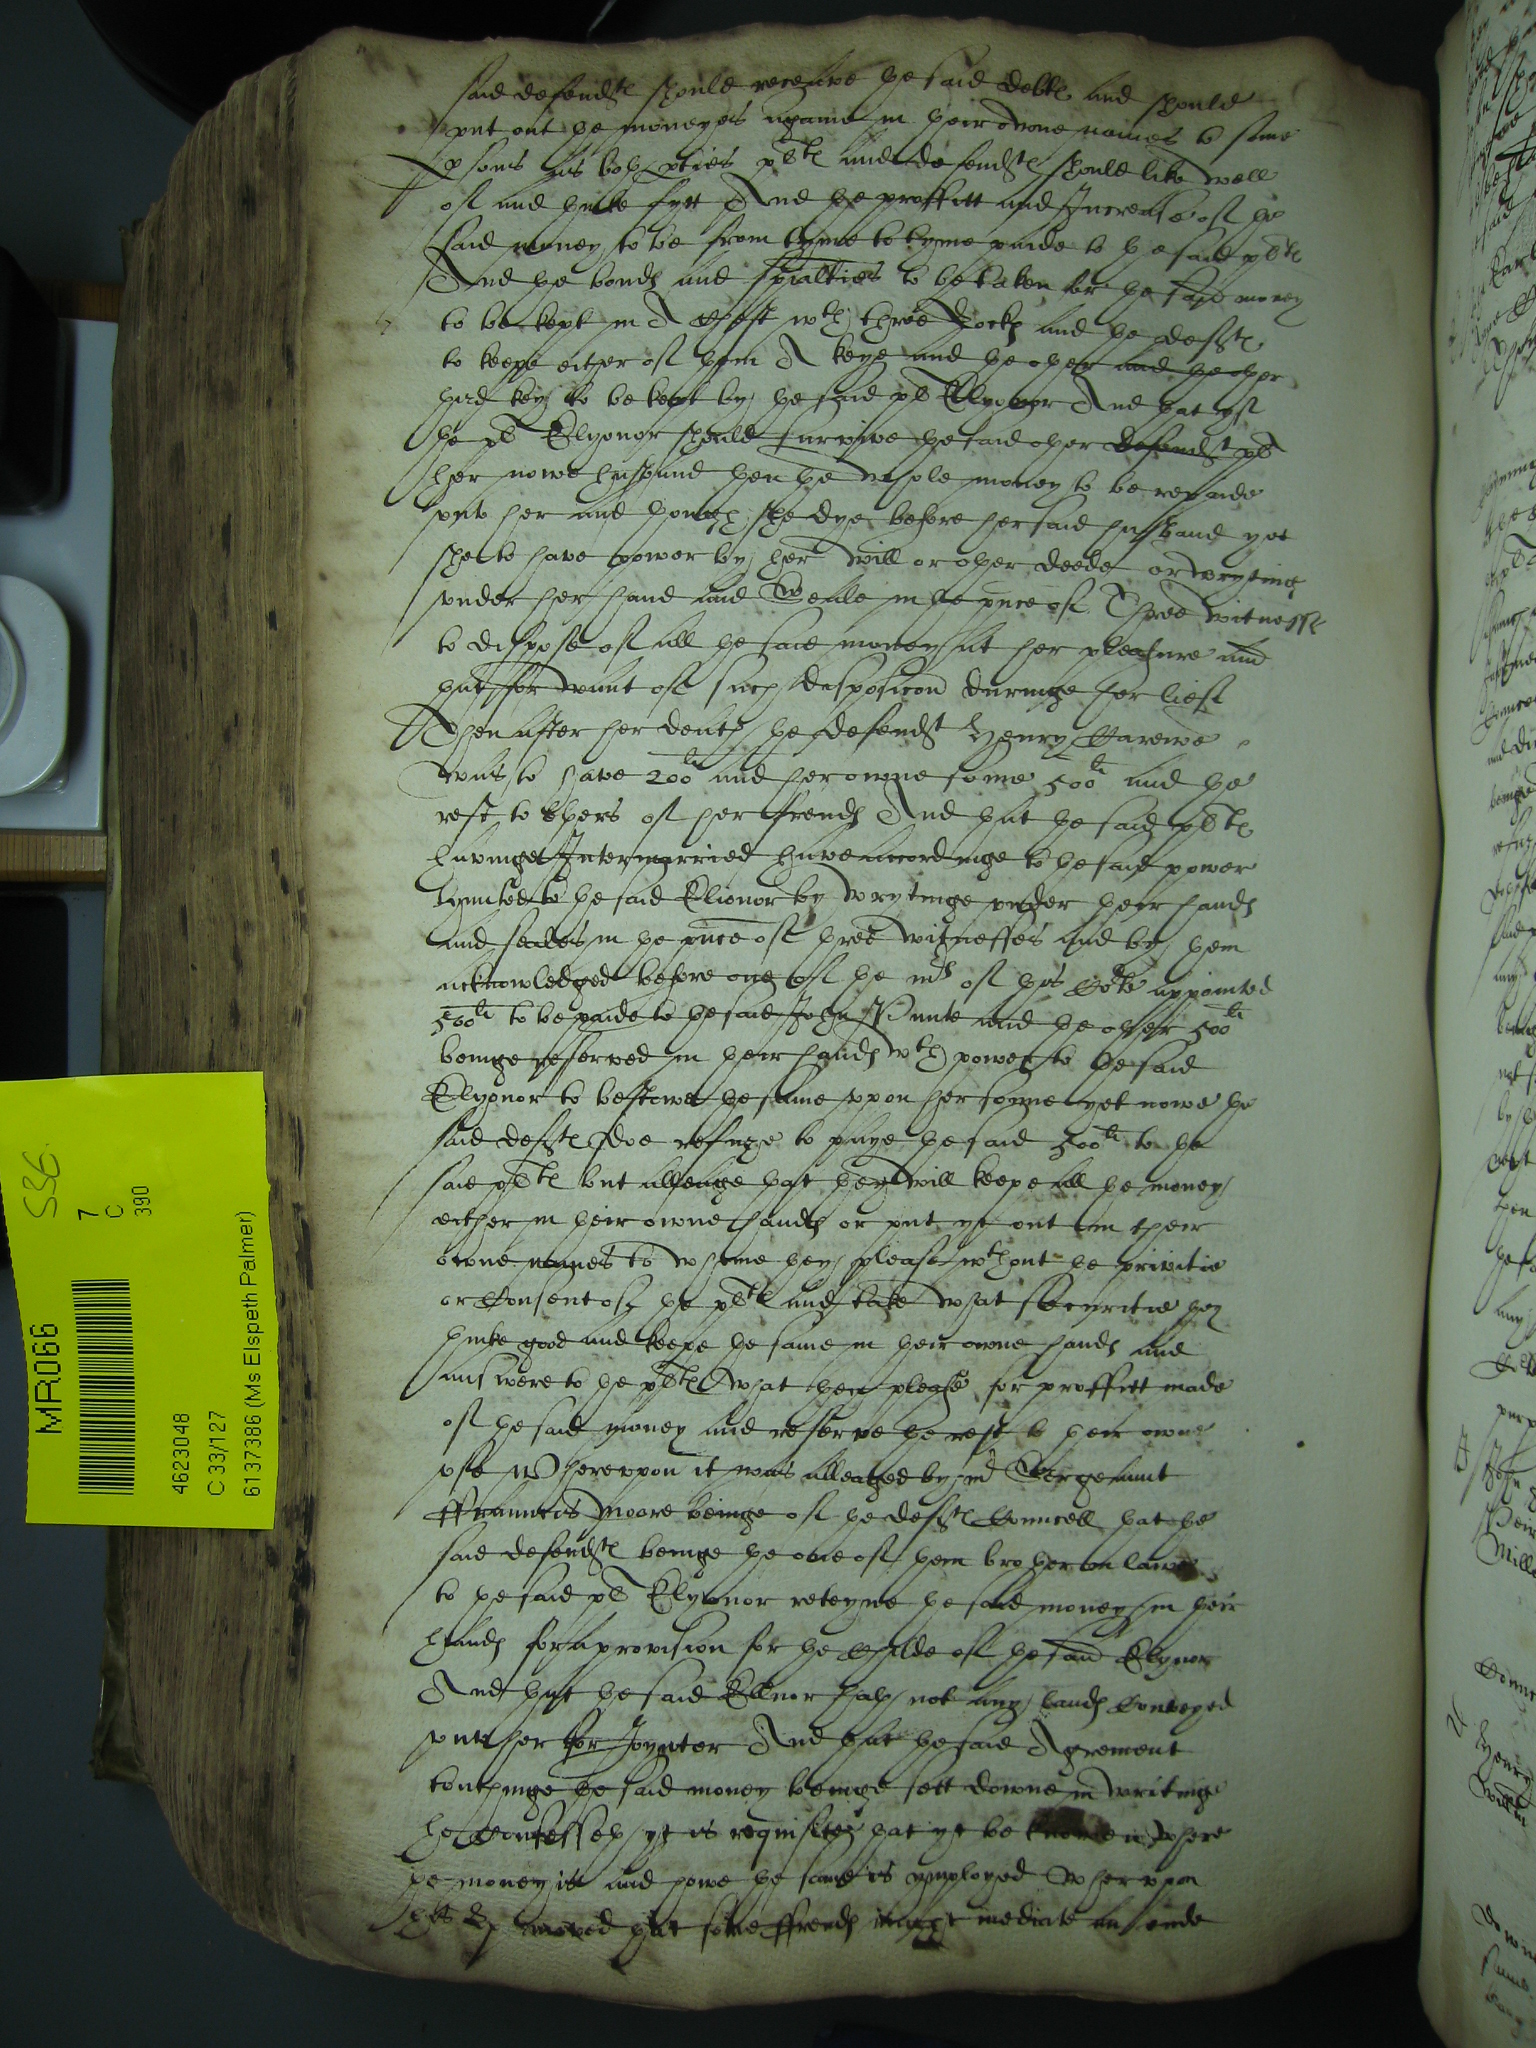 said defend^tes should receave the said debts and should
put out the moneyes againe in their owne names to some
psons as both pties pl^tes and defend^tes should like well
of and thinke fytt And the proffitt and Increase of the
said money to be from tyme to tyme paide to the said pl^tes
And the bonds and spialties to be taken for the said money
to be kept in A Chest w^th three Lockes and the def^tes
to keepe either of them A keye and the other and the other
third key to be kept by the said pl^t Elyonor And that yf
the pl^t Elyonor should survive the said other defend^t pl^t
her nowe husband then the whole money to be repaide
unto her and thoughe she dye before her said husband yet
she to have power by her will or other deede or wryting
under her hand and Seale in the pnce of Three witnesses
to dispose of all the said money at her pleasure and
that for want of such disposicon duringe her lief
Then after her death the defend^t Henry Carewe
was to have 200^li and her owne sonne 500^li and the
rest to others of her frends And that the said pl^tes
havinge Intermarried have accordinge to the said power
lymited to the said Elionor by wrytinge under their hands
and seales in the pnce of three witnesses and by them
acknowledged before one of the m^rs of this Co^rte appointed
500^li to be paide to the said John and the other 500^li
beinge reserved in their hands w^th power to the said
Elyonor to bestowe the same uppon her sonne yet nowe the
said def^tes doe refuze to paye the said 500^li to the
said pl^tes but alleage that they will keepe all the money
either in their owne hands or put yt out in their
owne names to whome they please w^thout the privitie
or Consent of the pl^tes and take what securitie they
thinke good and keepe the same in their owne hands and
answere to the pl^tes what they please for proffitt made
of the said money and reserve the rest to their owne
use Whereuppon it was alleaged by m^r Sergeaunt
ffrauncis Moore beinge of the def^tes Councell that the
said defend^tes beinge the one of them brother in lawe
to the said pl^t Elyonor reteyne the said money in their
hands for a provision for the Childe of the said Elyonor
And that the said Ellnor hath not any lands Conveyed
unto her for Joynter And that the said Agrement
touchinge the said money beinge sett downe in writinge
he Confesseth yt is requisite that yt be knowen where
the money is and howe the same is ymployed Wherupon
this Co^rt moved that some ffrends might mediate an ende
MR066
7
C
390
4623048
C 33/127
6137386 (Ms Elspeth Palmer)